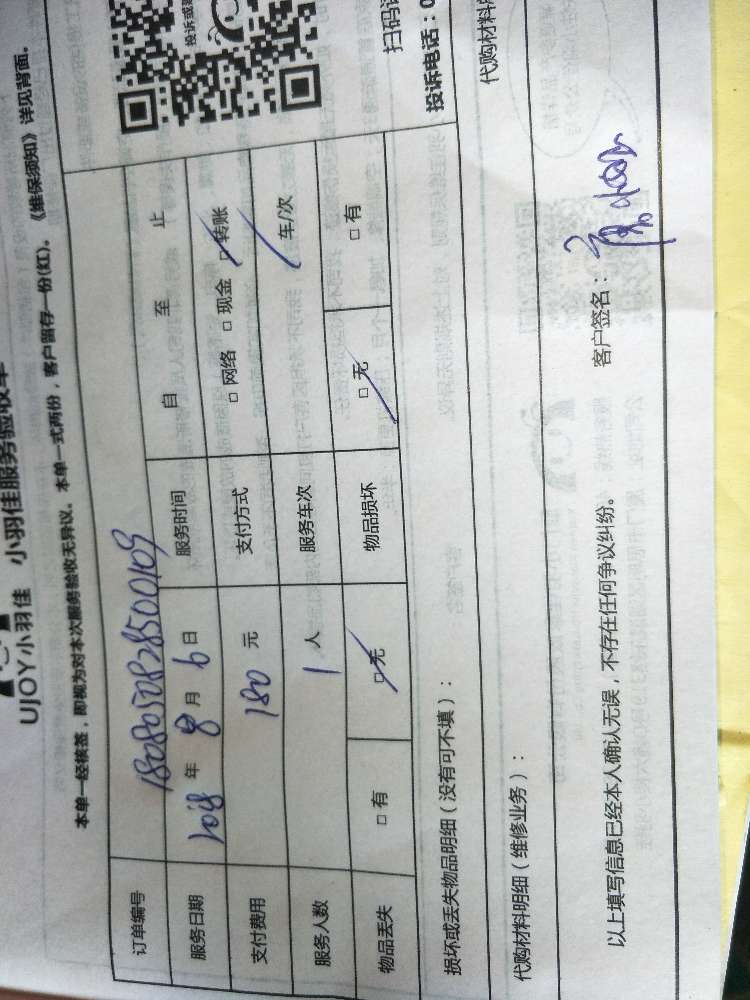 UJOY小羽佳 小羽佳服务验收单
本单一经核签，即视为对本次服务验收无异议。本单一式两份，客户留存一份(红)。《维保须知》详见背面。
订单编号
服务日期 2018 年 8 月 6 日 服务时间 自 至 止
支付费用 180 元 支付方式 □ 网络 □ 现金 □ 转账
服务人数 1 人 服务车次 车/次
物品丢失 □ 有 □ 无 物品损坏 □ 无 □ 有
投诉或建
扫码
投诉电话：0
损坏或丢失物品明细（没有可不填）：
代购材料明细（维修业务）：
代购材料
以上填写信息已经本人确认无误，不存在任何争议纠纷。 客户签名：